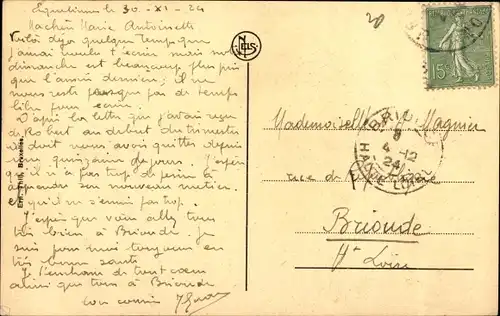 le 30 - XI - 24
Ma chère Marie Antoinette
Voilà déjà quelque temps que
j'aurai voulu t'écrire mais notre
dimanche est beaucoup plus pris
que l'année dernière; il ne
nous reste presque pas de temps
libre pour écrire.
D'après la lettre que j'avais reçu
de Robert au début du trimestre
il doit nous quitter depuis
une quinzaine de jours. J'espère
qu'il n'a pas trop de peine à
apprendre son nouveau métier
et qu'il ne s'ennuie pas trop.
J'espère que vous allez tous
très bien à Brioude. Je
suis pour moi toujours en
très bonne santé.
Je t'embrasse de tout coeur
ainsi que tous à Brioude
ton cousin
Ern. Thill, Bruxelles
NELS
20
15c
BRIOUDE
4 - 12
24
HAUTE LOIRE
Mademoiselle M. Magnier
rue de
Brioude
Hte Loire